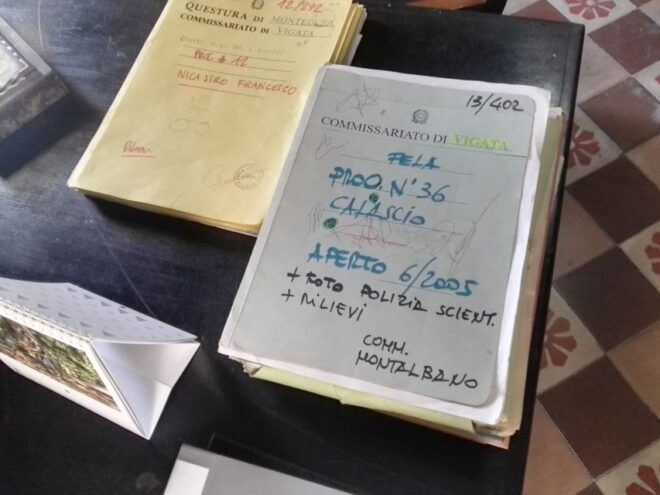 12/292
QUESTURA DI MONTELUSA
COMMISSARIATO DI VIGATA
NICASIRO FRANCESCO
13/402
COMMISSARIATO DI VIGATA
PELA
PROC. N° 36
CALASCIO
APERTO 6/2005
+ FOTO POLIZIA SCIENT.
+ RILIEVI
COMM.
MONTALBANO